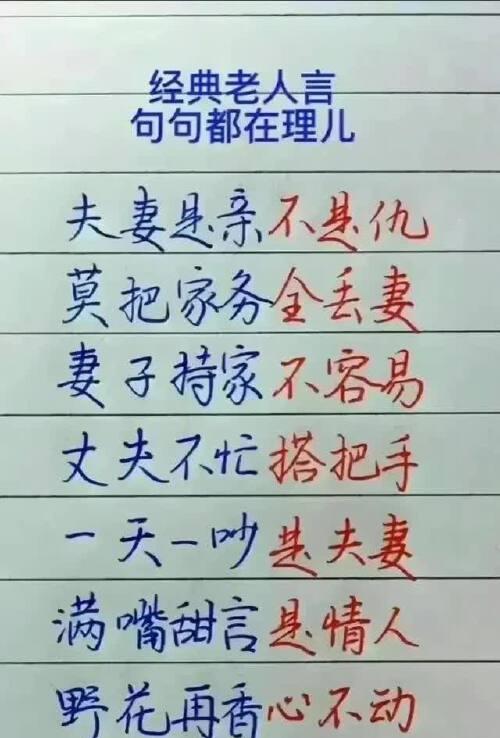 经典老人言
句句都在理儿
夫妻是亲不是仇
莫把家务全丢妻
妻子持家不容易
丈夫不忙搭把手
一天一吵是夫妻
满嘴甜言是情人
野花再香心不动